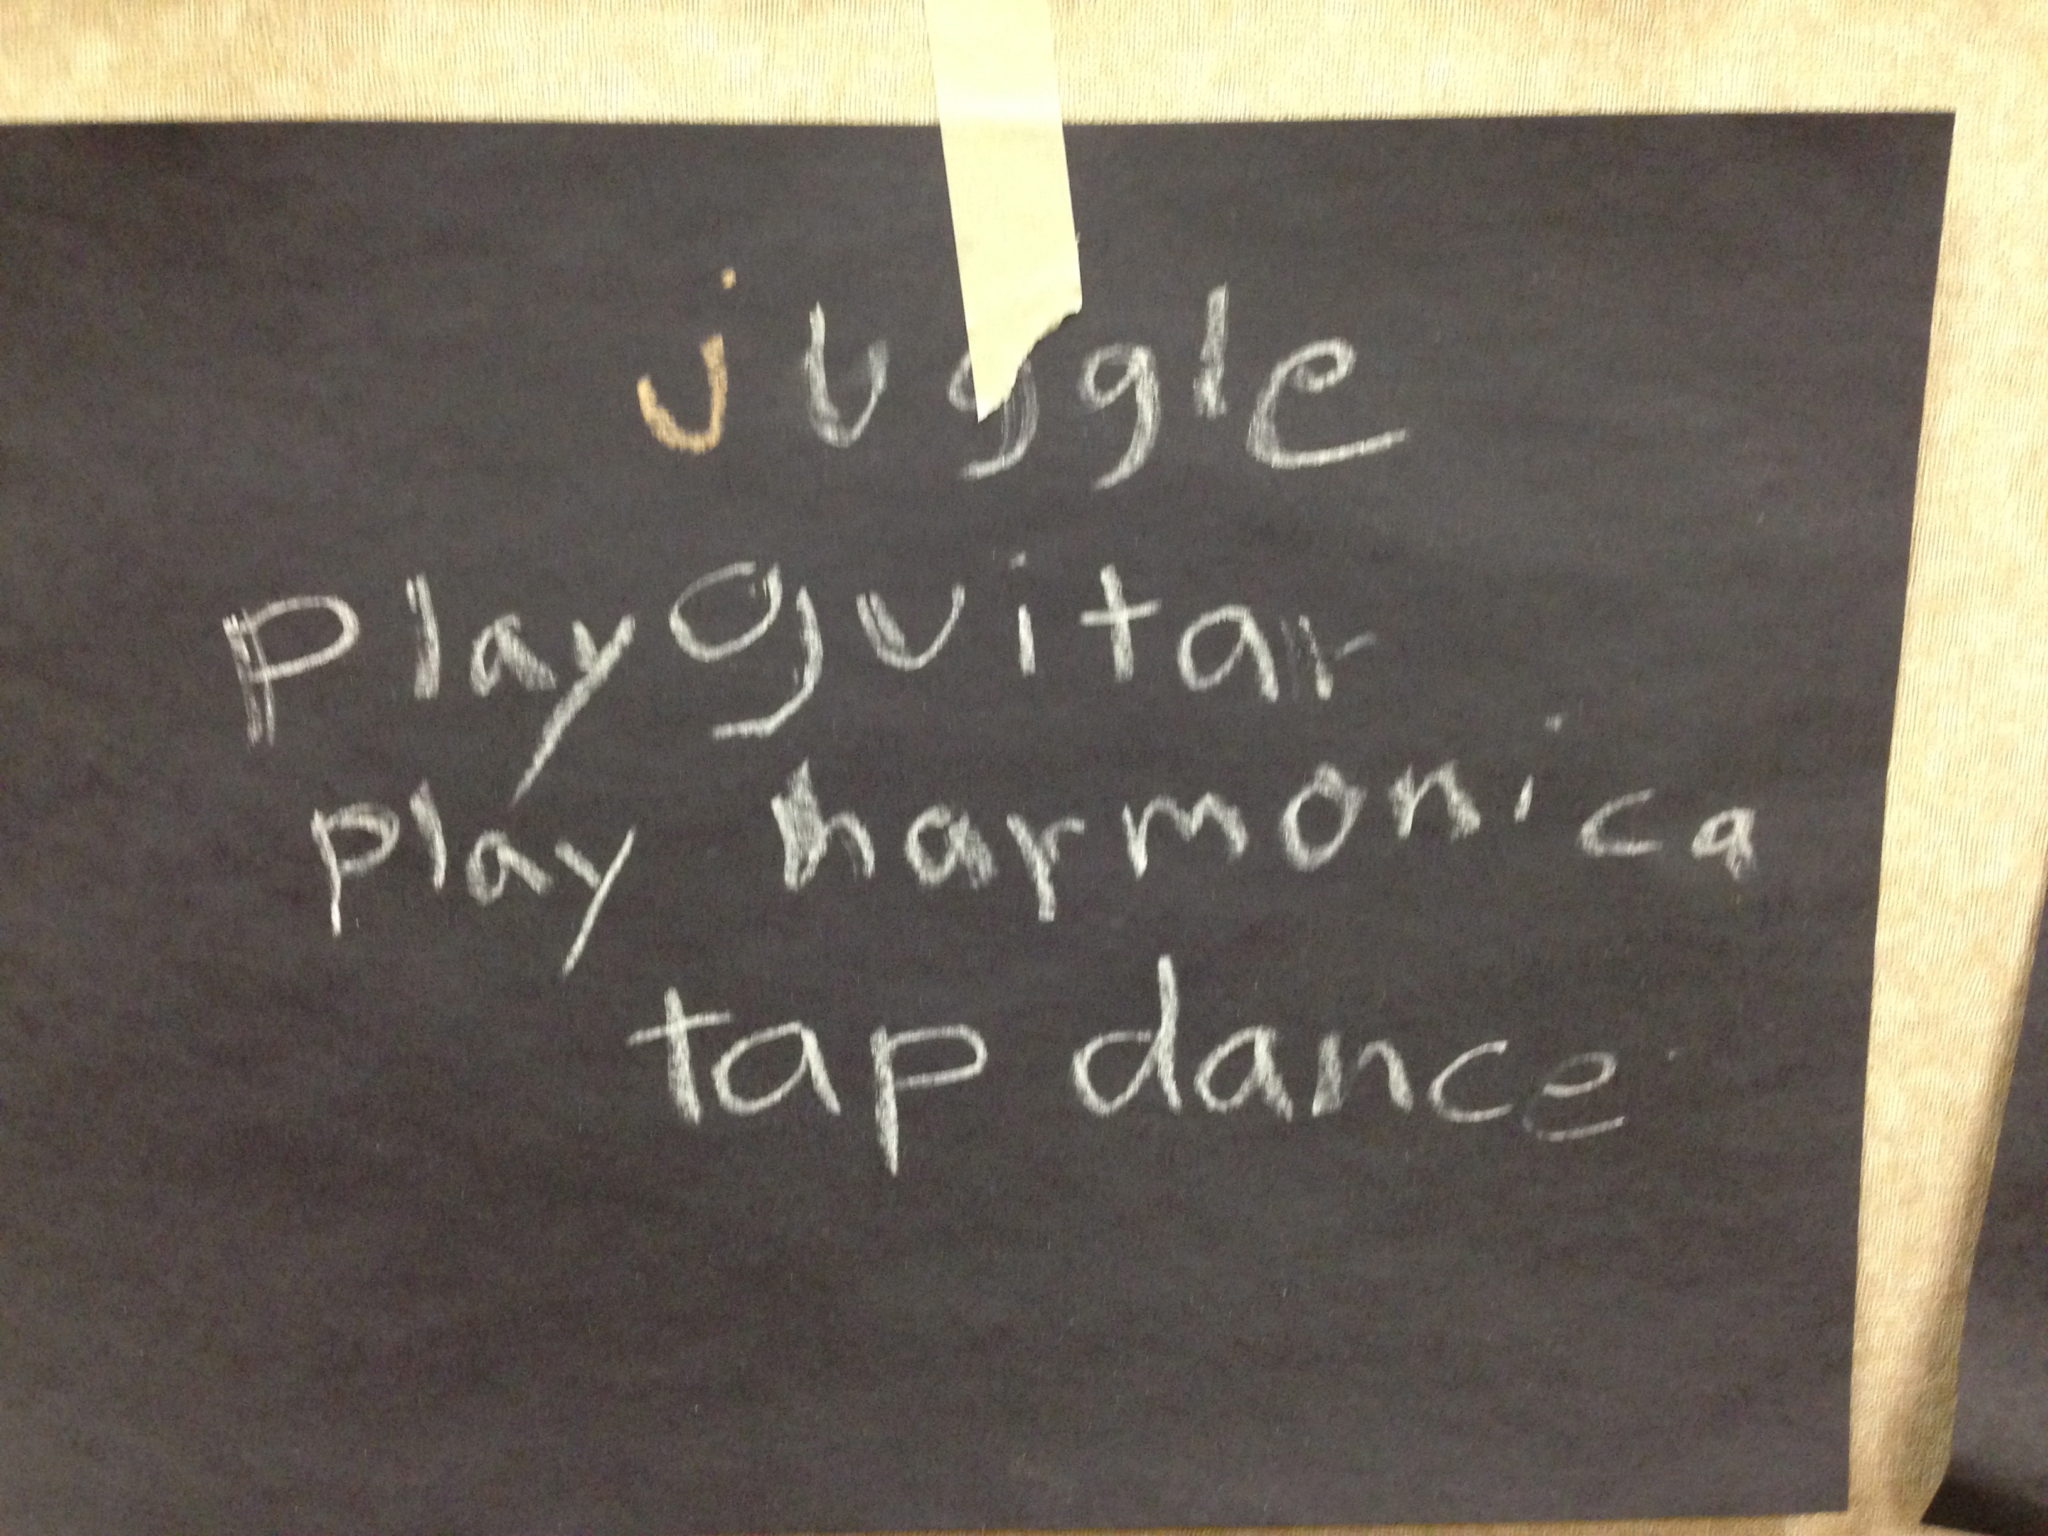 juggle
play guitar
play harmonica
tap dance